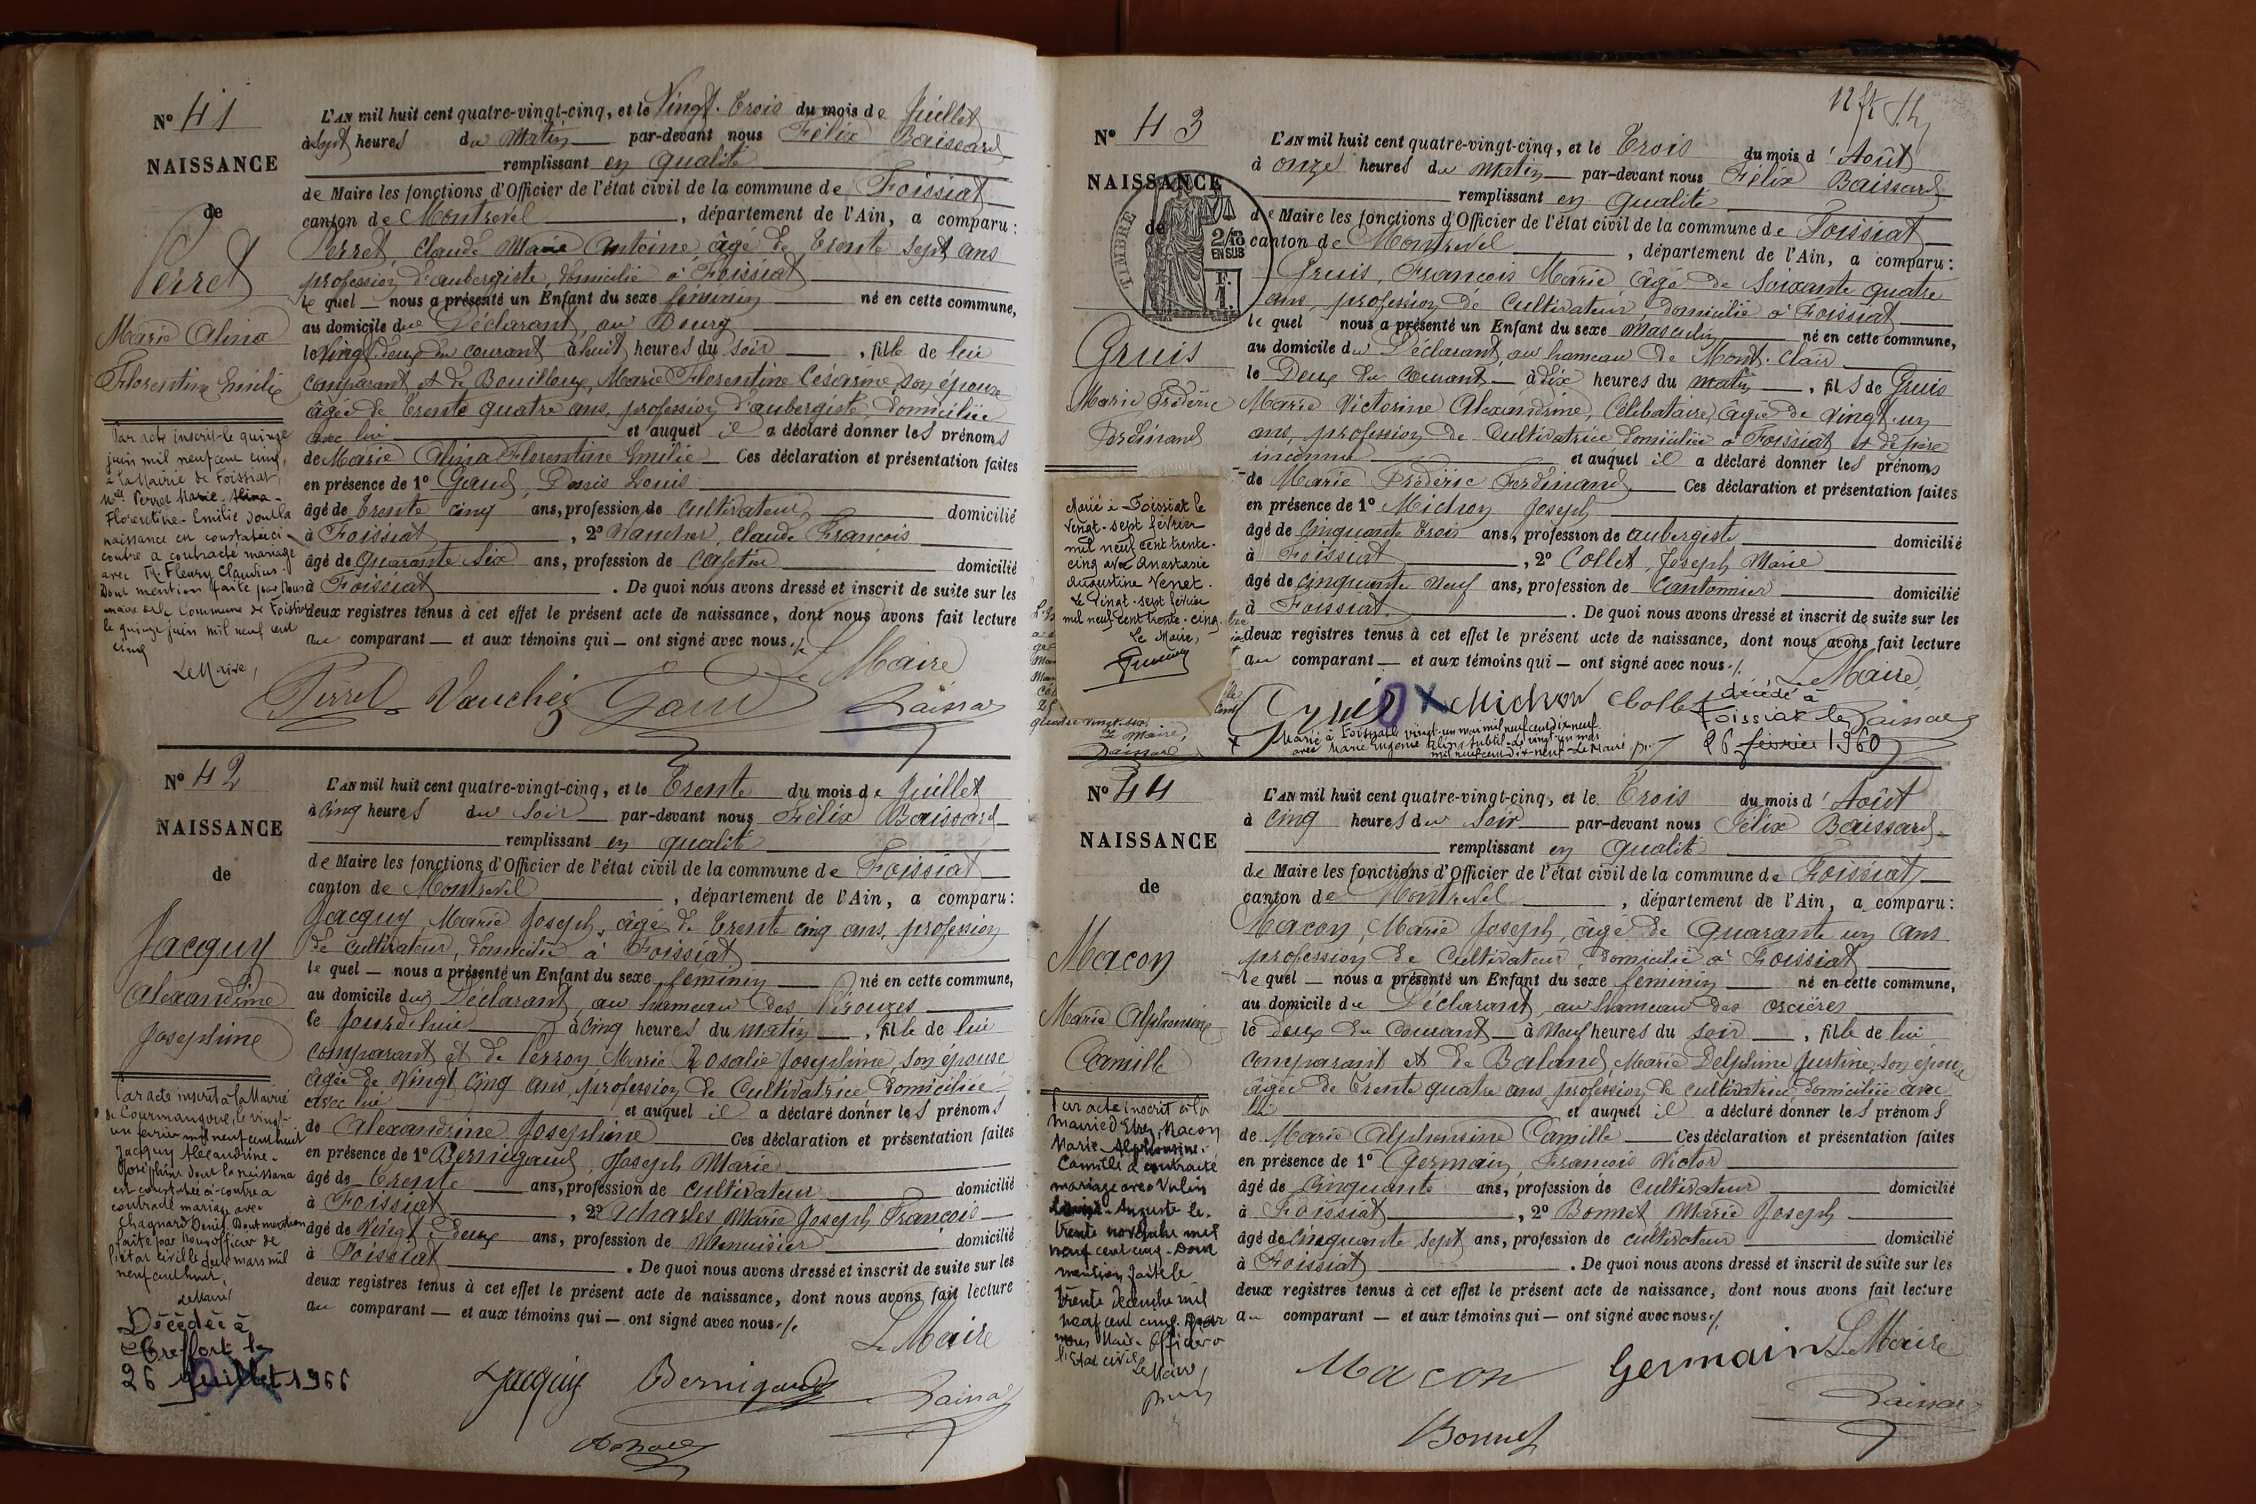 N° 41
NAISSANCE
de
Perret
Marie Alina
Florentine Emilie
Par acte inscrit le quinze
juin mil neuf cent cinq,
à la Mairie de Foissiat,
Mlle Perret Marie-Alina-
Florentine-Emilie dont la
naissance est constatée ci-
contre a contracté mariage
avec Mr Fleury Claudius.
Dont mention faite par Nous
maire de la Commune de Foissiat
le quinze juin mil neuf cent
cinq
Le Maire,
L'AN mil huit cent quatre-vingt-cinq, et le Vingt-Trois du mois de Juillet
à Sept heures du Matin par-devant nous Félix Baissard
remplissant en qualité
de Maire les fonctions d'Officier de l'état civil de la commune de Foissiat
canton de Montrevel, département de l'Ain, a comparu:
Perret, Claude Marie Antoine âgé de trente sept ans
profession d'aubergiste, domicilié à Foissiat
le quel nous a présenté un Enfant du sexe féminin né en cette commune,
au domicile du Déclarant, au Bourg
le Vingt deux du courant à huit heures du soir, fille de lui
comparant et de Bouilloux, Marie Florentine Césarine, son épouse
âgée de trente quatre ans, profession d'aubergiste, domiciliée
avec lui et auquel il a déclaré donner les prénoms
de Marie Alina Florentine Emilie Ces déclaration et présentation faites
en présence de 1° Gaud, Denis Louis
âgé de trente cinq ans, profession de Cultivateur domicilié
à Foissiat, 2° Vaucher, Claude François
âgé de quarante six ans, profession de cafetier domicilié
à Foissiat. De quoi nous avons dressé et inscrit de suite sur les
deux registres tenus à cet effet le présent acte de naissance, dont nous avons fait lecture
au comparant — et aux témoins qui — ont signé avec nous./.
Le Maire
Perret Vaucher Gaud Baissard
N° 42
NAISSANCE
de
Jacquy
Alexandrine
Joséphine
Par acte inscrit à la Mairie
de Courmangoux, le vingt-
un février mil neuf cent huit
Jacquy Alexandrine-
Joséphine dont la naissance
est constatée ci-contre a
contracté mariage avec
Chagnard Denis. Dont mention
faite par Nous officier de
l'état civil le deux mars mil
neuf cent huit,
Le Maire
Décédée à
Treffort le
26 Juillet 1966
L'AN mil huit cent quatre-vingt-cinq, et le Trente du mois de Juillet
à cinq heures du soir par-devant nous Félix Baissard
remplissant en qualité
de Maire les fonctions d'Officier de l'état civil de la commune de Foissiat
canton de Montrevel, département de l'Ain, a comparu:
Jacquy, Marie Joseph, âgé de trente cinq ans, profession
de cultivateur, domicilié à Foissiat
le quel — nous a présenté un Enfant du sexe féminin né en cette commune,
au domicile du Déclarant, au hameau des Pérouzes
le jourd'hui à cinq heures du matin, fille de lui
comparant et de Perron Marie Rosalie Joséphine, son épouse
âgée de vingt cinq ans, profession de Cultivatrice domiciliée
avec lui et auquel il a déclaré donner les prénoms
de Alexandrine Joséphine Ces déclaration et présentation faites
en présence de 1° Bernigaud, Joseph Marie
âgé de trente ans, profession de cultivateur domicilié
à Foissiat, 2° Acharles Marie Joseph François
âgé de Vingt-deux ans, profession de Menuisier domicilié
à Foissiat. De quoi nous avons dressé et inscrit de suite sur les
deux registres tenus à cet effet le présent acte de naissance, dont nous avons fait lecture
au comparant — et aux témoins qui — ont signé avec nous./.
Le Maire
Jacquy Bernigaud Baissard
N° 43
NAISSANCE
de
TIMBRE
2/10
EN SUS
F.
1.
Gruis
Marie Fréderic
Ferdinand
Marié à Foissiat le
vingt-sept février
mil neuf cent trente-
cinq avec Anastasie
Augustine Venet.
Le vingt-sept février
mil neuf cent trente-cinq.
Le Maire,
quatre-vingt-six.
Le Maire,
Baissard
L'AN mil huit cent quatre-vingt-cinq, et le Trois du mois d'Août
à onze heures du matin par-devant nous Félix Baissard
remplissant en qualité
de Maire les fonctions d'Officier de l'état civil de la commune de Foissiat
canton de Montrevel, département de l'Ain, a comparu:
Gruis, François Marie âgé de soixante quatre
ans, profession de Cultivateur, domicilié à Foissiat
le quel nous a présenté un Enfant du sexe masculin né en cette commune,
au domicile du Déclarant, au hameau de Mont-clair
le Deux du courant — à dix heures du matin, fils de Gruis
Marie Victorine Alexandrine, Célibataire, âgée de vingt-un
ans, profession de Cultivatrice domiciliée à Foissiat et de père
inconnu et auquel il a déclaré donner les prénoms
de Marie Fréderic Ferdinand Ces déclaration et présentation faites
en présence de 1° Michon Joseph
âgé de cinquante trois ans, profession de aubergiste domicilié
à Foissiat, 2° Collet, Joseph Marie
âgé de cinquante neuf ans, profession de Cantonnier domicilié
à Foissiat. De quoi nous avons dressé et inscrit de suite sur les
deux registres tenus à cet effet le présent acte de naissance, dont nous avons fait lecture
au comparant — et aux témoins qui — ont signé avec nous./.
Le Maire
Gruis Michon Collet Baissard
décédé à
Foissiat le
26 février 1960
Marié à Foissiat le vingt-un mai mil neuf cent dix neuf
avec Marie Eugénie Alina Subtil. Le vingt-un mai
mil neuf cent dix-neuf. Le Maire
N° 44
NAISSANCE
de
Macon
Marie Alphonsine
Camille
Par acte inscrit à la
mairie d'Etrez, Macon
Marie-Alphonsine-
Camille a contracté
mariage avec Vulin
Auguste le
trente novembre mil
neuf cent cinq. Dont
mention faite le
trente décembre mil
neuf cent cinq. Par
nous Maire Officier de
l'Etat civil.
Le Maire,
L'AN mil huit cent quatre-vingt-cinq, et le Trois du mois d'Août
à cinq heures du soir par-devant nous Félix Baissard
remplissant en qualité
de Maire les fonctions d'Officier de l'état civil de la commune de Foissiat
canton de Montrevel, département de l'Ain, a comparu:
Macon, Marie Joseph, âgé de quarante un ans
profession de Cultivateur, domicilié à Foissiat
le quel — nous a présenté un Enfant du sexe féminin né en cette commune,
au domicile du Déclarant, au hameau des orcières
le deux du courant — à neuf heures du soir, fille de lui
comparant et de Baland, Marie Delphine Justine, son épouse
âgée de trente quatre ans, profession de cultivatrice domiciliée avec
lui et auquel il a déclaré donner les prénoms
de Marie Alphonsine Camille Ces déclaration et présentation faites
en présence de 1° Germain, François Victor
âgé de cinquante ans, profession de cultivateur domicilié
à Foissiat, 2° Bonnet Marie Joseph
âgé de cinquante sept ans, profession de cultivateur domicilié
à Foissiat. De quoi nous avons dressé et inscrit de suite sur les
deux registres tenus à cet effet le présent acte de naissance, dont nous avons fait lecture
au comparant — et aux témoins qui — ont signé avec nous./.
Le Maire
Macon Germain Baissard
Bonnet